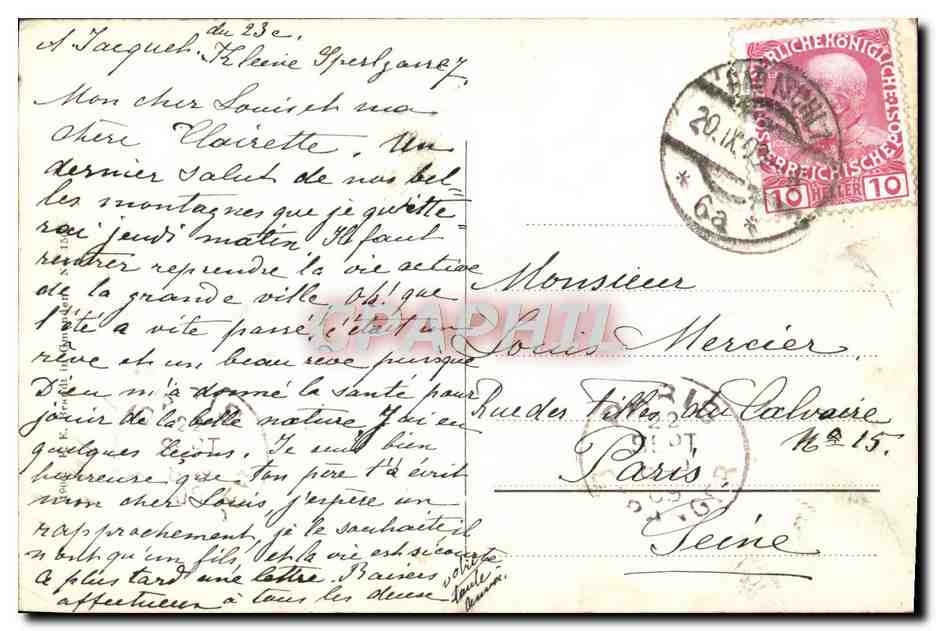 du 23 c.
A. Jacquet. Kleine Sperlgasse 7
Mon cher Louis et ma
chère Clairette. Un
dernier salut de nos bel-
les montagnes que je quitte
rai jeudi matin Il faut
rentrer reprendre la vie active
de la grande ville Oh! que
l'été a vite passé, c'était un
rêve et un beau rêve puisque
Dieu m'a donné la santé pour
jouir de la belle nature J'ai eu
quelques leçons. Je suis bien
heureuse que ton père t'a écrit
mon cher Louis, j'espère un
rapprochement, je le souhaite il
n'ont qu'un fils, et la vie est si courte
à plus tard une lettre. Baisers
affectueux à tous les deux
votre
tante
Monsieur
Louis Mercier.
Rue des filles du Calvaire
No 15.
Paris
Seine
20.IX.09
* 6a *
KAISERLICHE KÖNIGLICHE
ÖSTERREICHISCHE POST
10 HELLER 10
PARIS
22
SEPT
09
DISTRIBUTION
CPAPHIL